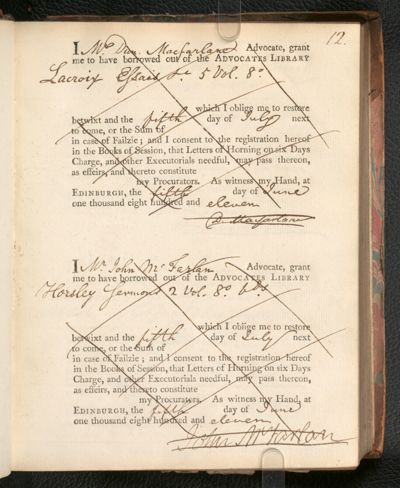 12.
I Mr Dun. Macfarlane Advocate, grant
me to have borrowed out of the ADVOCATES LIBRARY
Lacroix Essais &c 5 Vol. 8o
which I oblige me to restore
betwixt and the fifth day of July next
to come, or the Sum of
in case of Failzie; and I consent to the registration hereof
in the Books of Session, that Letters of Horning on six Days
Charge, and other Executorials needful, may pass thereon,
as effeirs, and thereto constitute
my Procurators. As witness my Hand, at
EDINBURGH, the fifth day of June
one thousand eight hundred and eleven
D. Macfarlane
I Mr. John McFarlan Advocate, grant
me to have borrowed out of the ADVOCATES LIBRARY
Horsley Sermons 2 Vol. 8o bds
which I oblige me to restore
betwixt and the fifth day of July next
to come, or the Sum of
in case of Failzie; and I consent to the registration hereof
in the Books of Session, that Letters of Horning on six Days
Charge, and other Executorials needful, may pass thereon,
as effeirs, and thereto constitute
my Procurators. As witness my Hand, at
EDINBURGH, the fifth day of June
one thousand eight hundred and eleven
John McFarlan